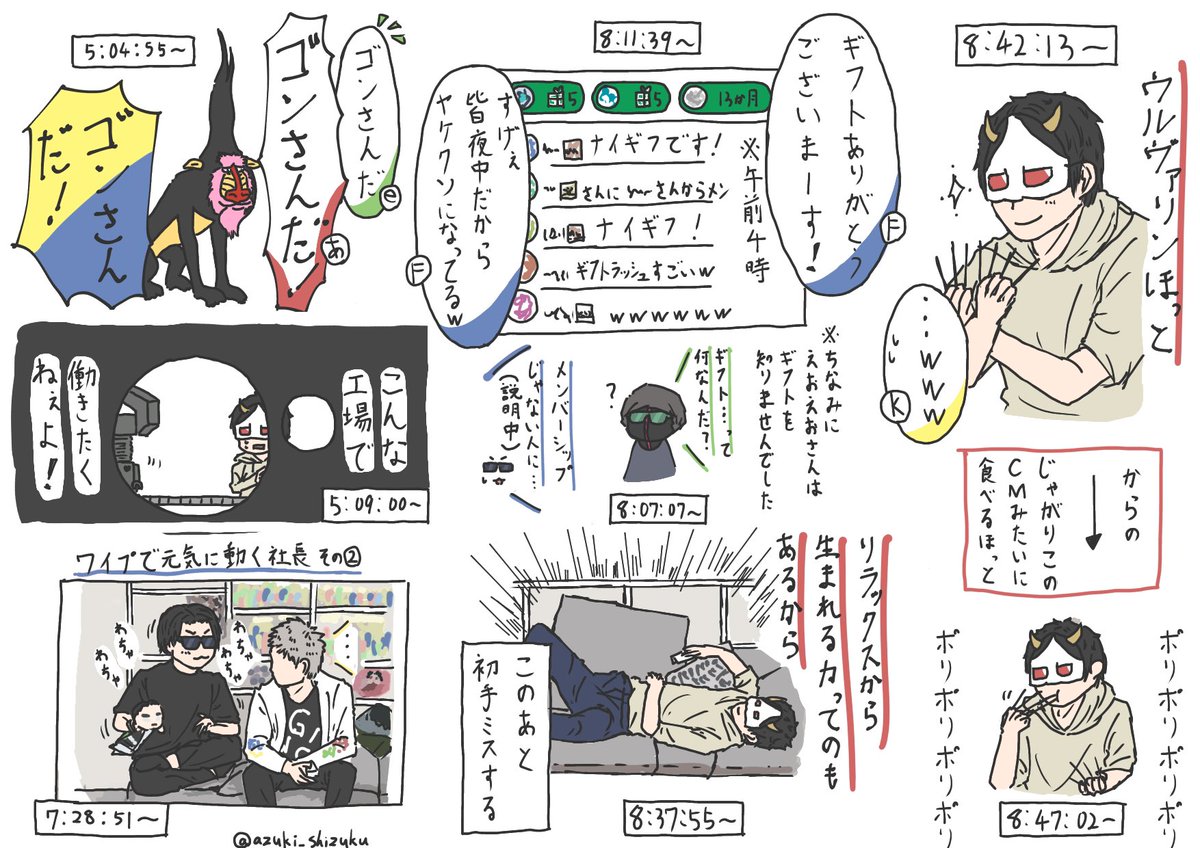 5:04:55～
ゴンさんだ
e
ゴンさんだ!
あ
ゴンさん
だ!
8:11:39～
ギフトありがとう
ございまーす!
F
5
5
13か月
ナイギフです!
さんに
さんからメン
ナイギフ!
ギフトラッシュすごいw
wwwwww
※午前4時
すげぇ
皆夜中だから
ヤケクソになってるw
F
8:42:13～
ウルヴァリンほっと
…www
K
からの
↓
じゃがりこの
CMみたいに
食べるほっと
ポリポリポリポリ
ポリポリポリポリ
8:47:02～
こんな
工場で
働きたく
ねぇよ!
5:09:00～
※ちなみに
えおえおさんは
ギフトを
知りませんでした
ギフト…って
何なんだ?
?
メンバーシップ
じゃない人に…
(説明中)
8:07:07～
ワイプで元気に動く社長 その②
わちゃ
わちゃ
わちゃ
わちゃ
…
7:28:51～
リラックスから
生まれる力ってのも
あるから
このあと
初手ミスする
8:37:55～
@azuki_shizuku